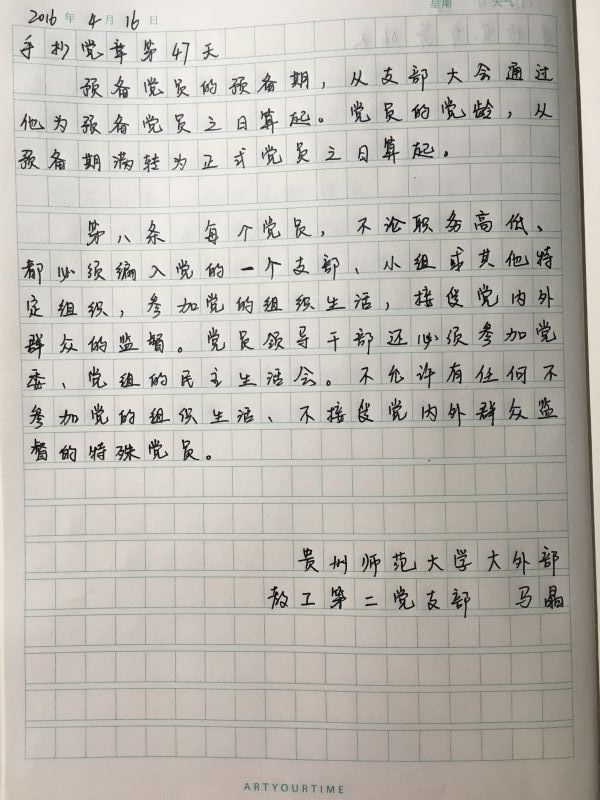 星期 天气
2016年4月16日
手抄党章第47天
预备党员的预备期，从支部大会通过
他为预备党员之日算起。党员的党龄，从
预备期满转为正式党员之日算起。
第八条 每个党员，不论职务高低、
都必须编入党的一个支部、小组或其他特
定组织，参加党的组织生活，接受党内外
群众的监督。党员领导干部还必须参加党
委、党组的民主生活会。不允许有任何不
参加党的组织生活、不接受党内外群众监
督的特殊党员。
贵州师范大学大外部
教工第二党支部 马晶
ARTYOURTIME